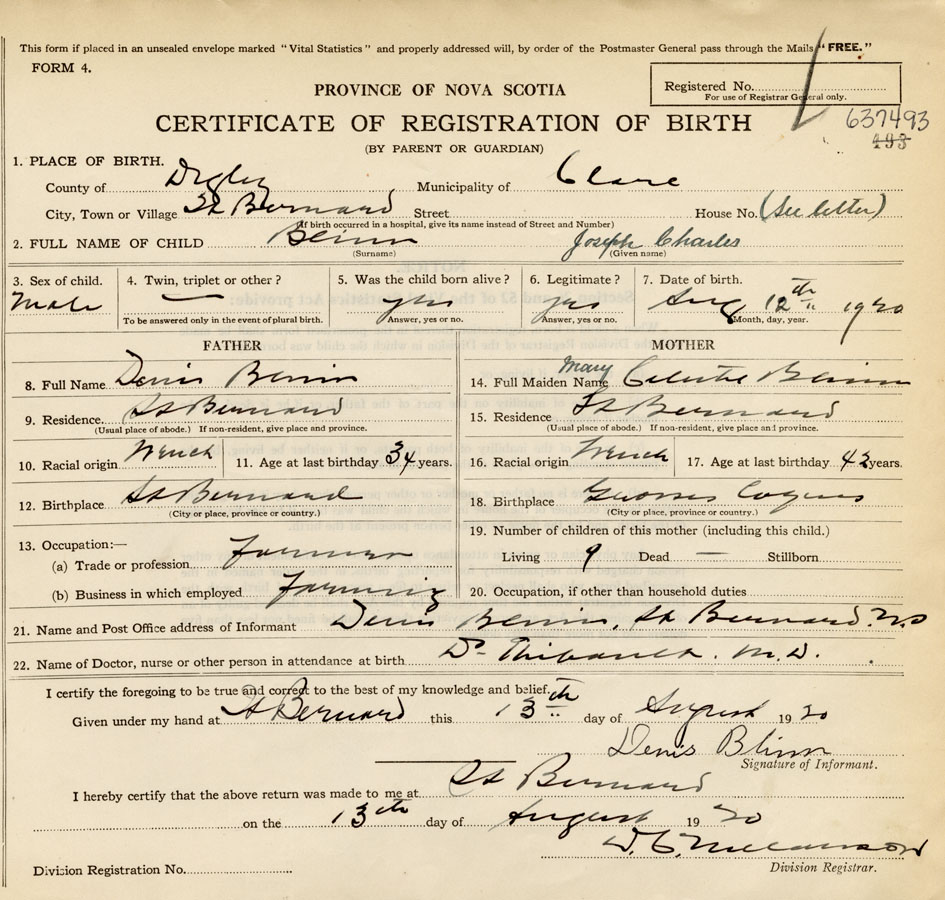 This form if placed in an unsealed envelope marked "Vital Statistics" and properly addressed will, by order of the Postmaster General pass through the Mails "FREE."
FORM 4.
Registered No.
For use of Registrar General only.
PROVINCE OF NOVA SCOTIA
CERTIFICATE OF REGISTRATION OF BIRTH
637493
493
(BY PARENT OR GUARDIAN)
1. PLACE OF BIRTH.
County of Digby Municipality of Clare
City, Town or Village St Bernard Street House No. (See letter)
(If birth occurred in a hospital, give its name instead of Street and Number)
2. FULL NAME OF CHILD Blinn Joseph Charles
(Surname) (Given name)
3. Sex of child. 4. Twin, triplet or other? 5. Was the child born alive? 6. Legitimate? 7. Date of birth.
Male — yes yes Aug 12th 1920
To be answered only in the event of plural birth. Answer, yes or no. Answer, yes or no. Month, day, year.
FATHER MOTHER
8. Full Name Denis Blinn 14. Full Maiden Name Mary Celeste Blinn
9. Residence St Bernard 15. Residence St Bernard
(Usual place of abode.) If non-resident, give place and province. (Usual place of abode.) If non-resident, give place and province.
10. Racial origin French 11. Age at last birthday 34 years. 16. Racial origin French 17. Age at last birthday 42 years.
12. Birthplace St Bernard 18. Birthplace
(City or place, province or country.) (City or place, province or country.)
19. Number of children of this mother (including this child.)
13. Occupation:—
(a) Trade or profession Farmer Living 9 Dead — Stillborn
(b) Business in which employed Farming 20. Occupation, if other than household duties
21. Name and Post Office address of Informant Denis Blinn, St Bernard N.S
22. Name of Doctor, nurse or other person in attendance at birth Dr Thibault. M.D.
I certify the foregoing to be true and correct to the best of my knowledge and belief.
Given under my hand at St Bernard this 13th day of August 1920
Denis Blinn
Signature of Informant.
I hereby certify that the above return was made to me at St Bernard
on the 13th day of August 1920
Division Registration No. Division Registrar.